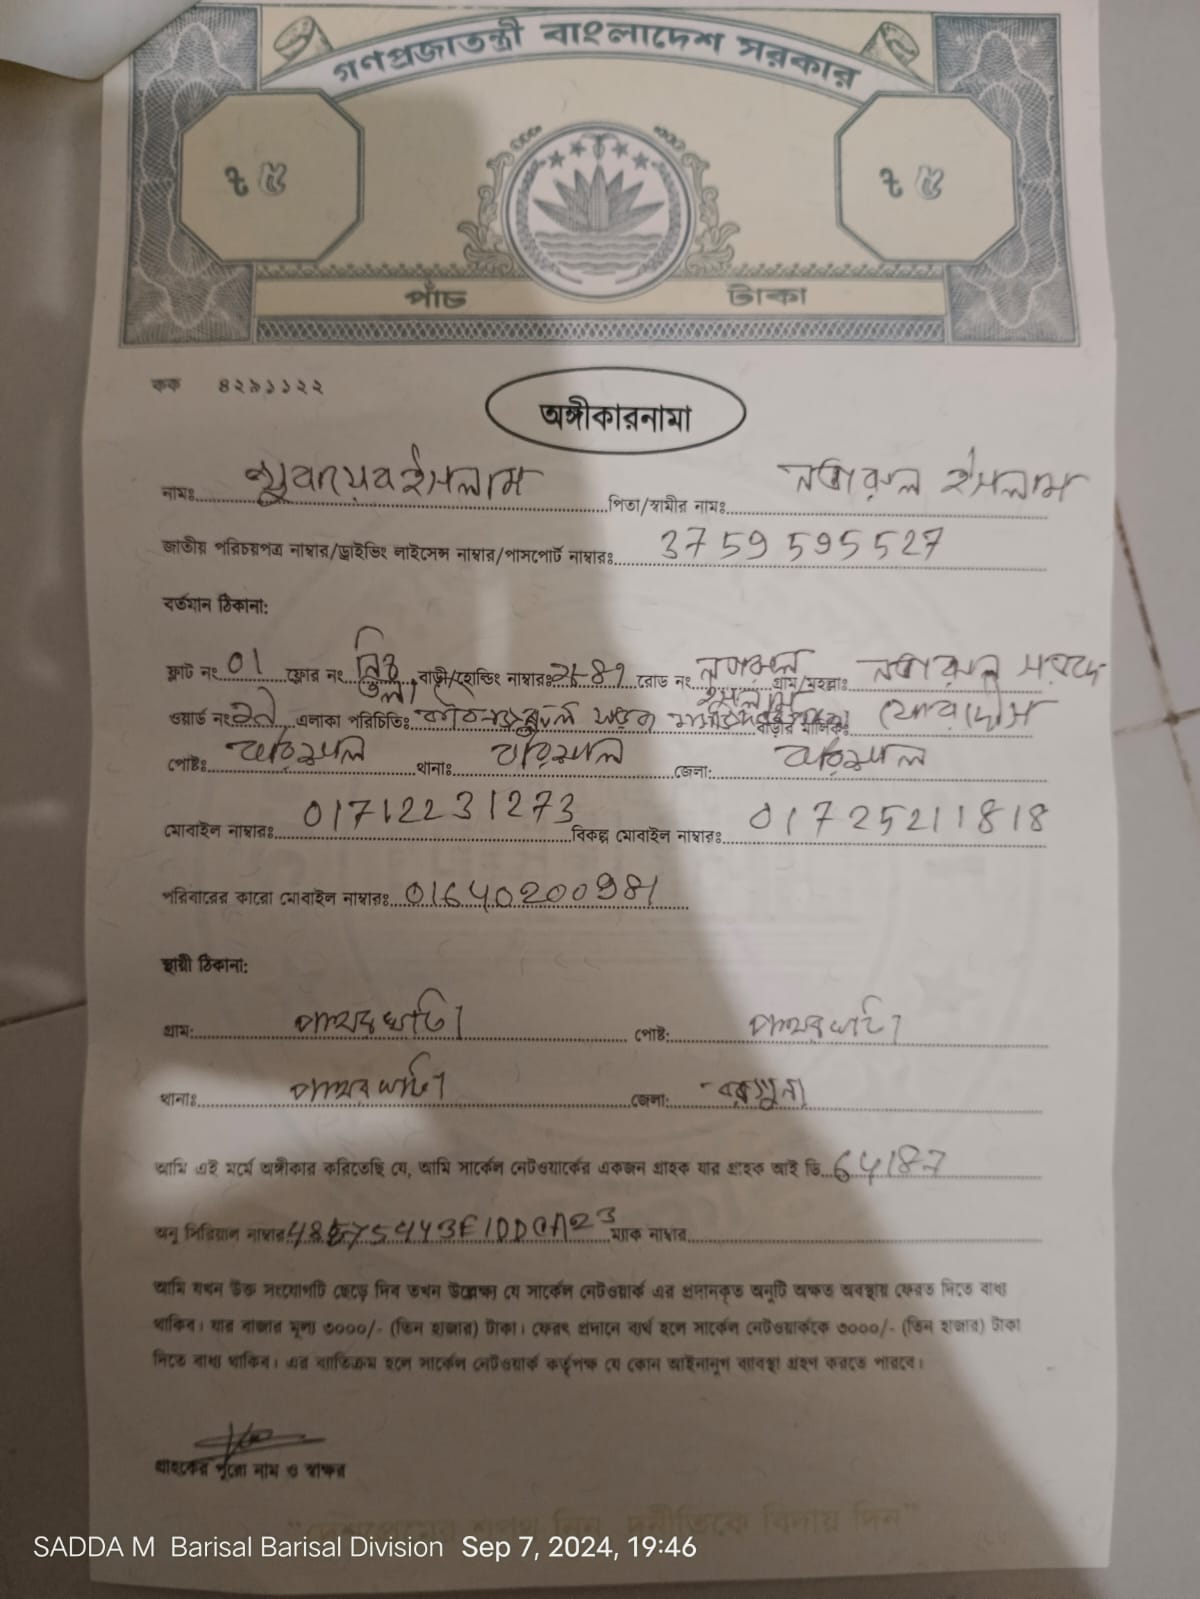 গণপ্রজাতন্ত্রী বাংলাদেশ সরকার
৳ ৫ ৳ ৫
পাঁচ টাকা
কক ৪২৯১১২২
অঙ্গীকারনামা
নামঃ ইসলাম পিতা/স্বামীর নামঃ নজরুল ইসলাম
জাতীয় পরিচয়পত্র নাম্বার/ড্রাইভিং লাইসেন্স নাম্বার/পাসপোর্ট নাম্বারঃ 3759595527
বর্তমান ঠিকানা:
ফ্লাট নং 01 ফ্লোর নং বাড়ী/হোল্ডিং নাম্বারঃ রোড নং গ্রাম/মহল্লাঃ
ওয়ার্ড নং এলাকা পরিচিতিঃ বাড়ীর মালিকঃ
পোষ্টঃ বরিশাল থানাঃ বরিশাল জেলা: বরিশাল
মোবাইল নাম্বারঃ 01712231273 বিকল্প মোবাইল নাম্বারঃ 01725211818
পরিবারের কারো মোবাইল নাম্বারঃ 01640200981
স্থায়ী ঠিকানা:
গ্রাম: পাথরঘাটা পোষ্ট: পাথরঘাটা
থানাঃ পাথরঘাটা জেলা: বরগুনা
আমি এই মর্মে অঙ্গীকার করিতেছি যে, আমি সার্কেল নেটওয়ার্কের একজন গ্রাহক যার গ্রাহক আই ডি 64187
অনু সিরিয়াল নাম্বার ম্যাক নাম্বার
আমি যখন উক্ত সংযোগটি ছেড়ে দিব তখন উল্লেক্ষ্য যে সার্কেল নেটওয়ার্ক এর প্রদানকৃত অনুটি অক্ষত অবস্থায় ফেরত দিতে বাধ্য
থাকিব। যার বাজার মূল্য ৩০০০/- (তিন হাজার) টাকা। ফেরৎ প্রদানে ব্যর্থ হলে সার্কেল নেটওয়ার্ককে ৩০০০/- (তিন হাজার) টাকা
দিতে বাধ্য থাকিব। এর ব্যতিক্রম হলে সার্কেল নেটওয়ার্ক কর্তৃপক্ষ যে কোন আইনানুগ ব্যবস্থা গ্রহণ করতে পারবে।
গ্রাহকের পুরো নাম ও স্বাক্ষর
"দেশপ্রেমের শপথ নিন, দুর্নীতিকে বিদায় দিন"
SADDA M Barisal Barisal Division Sep 7, 2024, 19:46